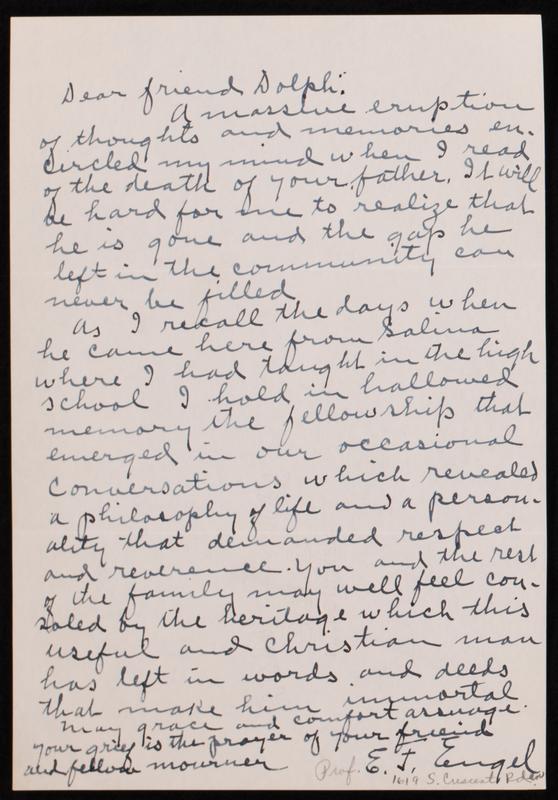 Dear friend Dolph:
A massive eruption
of thoughts and memories en-
circled my mind when I read
of the death of your father. It will
be hard for me to realize that
he is gone and the gap he
left in the community can
never be filled
As I recall the days when
he came here from Salina
where I had taught in the high
school I hold in hallowed
memory the fellowship that
emerged in our occasional
conversations which revealed
a philosophy of life and a person-
ality that demanded respect
and reverence. You and the rest
of the family may well feel con-
soled by the heritage which this
useful and Christian man
has left in words and deeds
that make him immortal
May grace and comfort assuage
your grief is the prayer of your friend
and fellow mourner
Prof. E. J. Engel
1619 S. Crescent